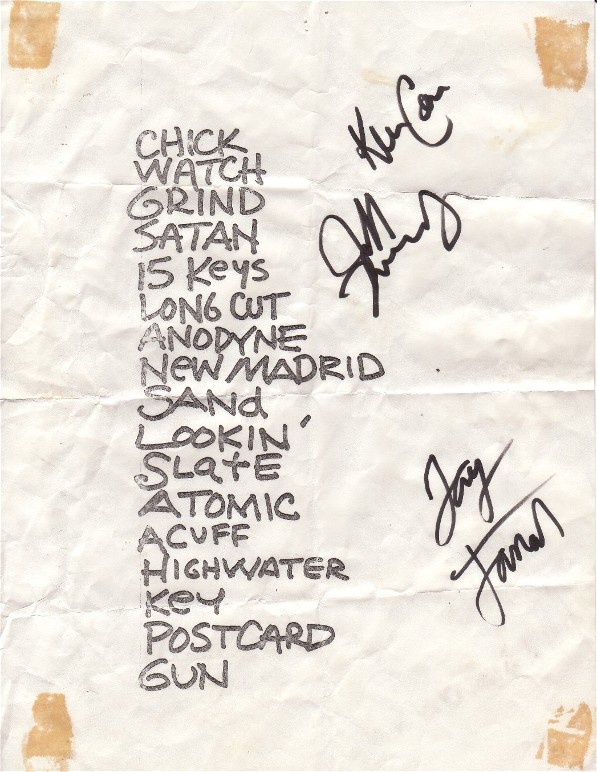 CHICK
WATCH
GRIND
SATAN
15 Keys
LONG CUT
ANODYNE
NEW MADRID
SANd
LOOKIN'
SLatE
ATOMIC
ACUFF
HIGHWATER
Key
POSTCARD
GUN
Jeff
Jay
Farrar